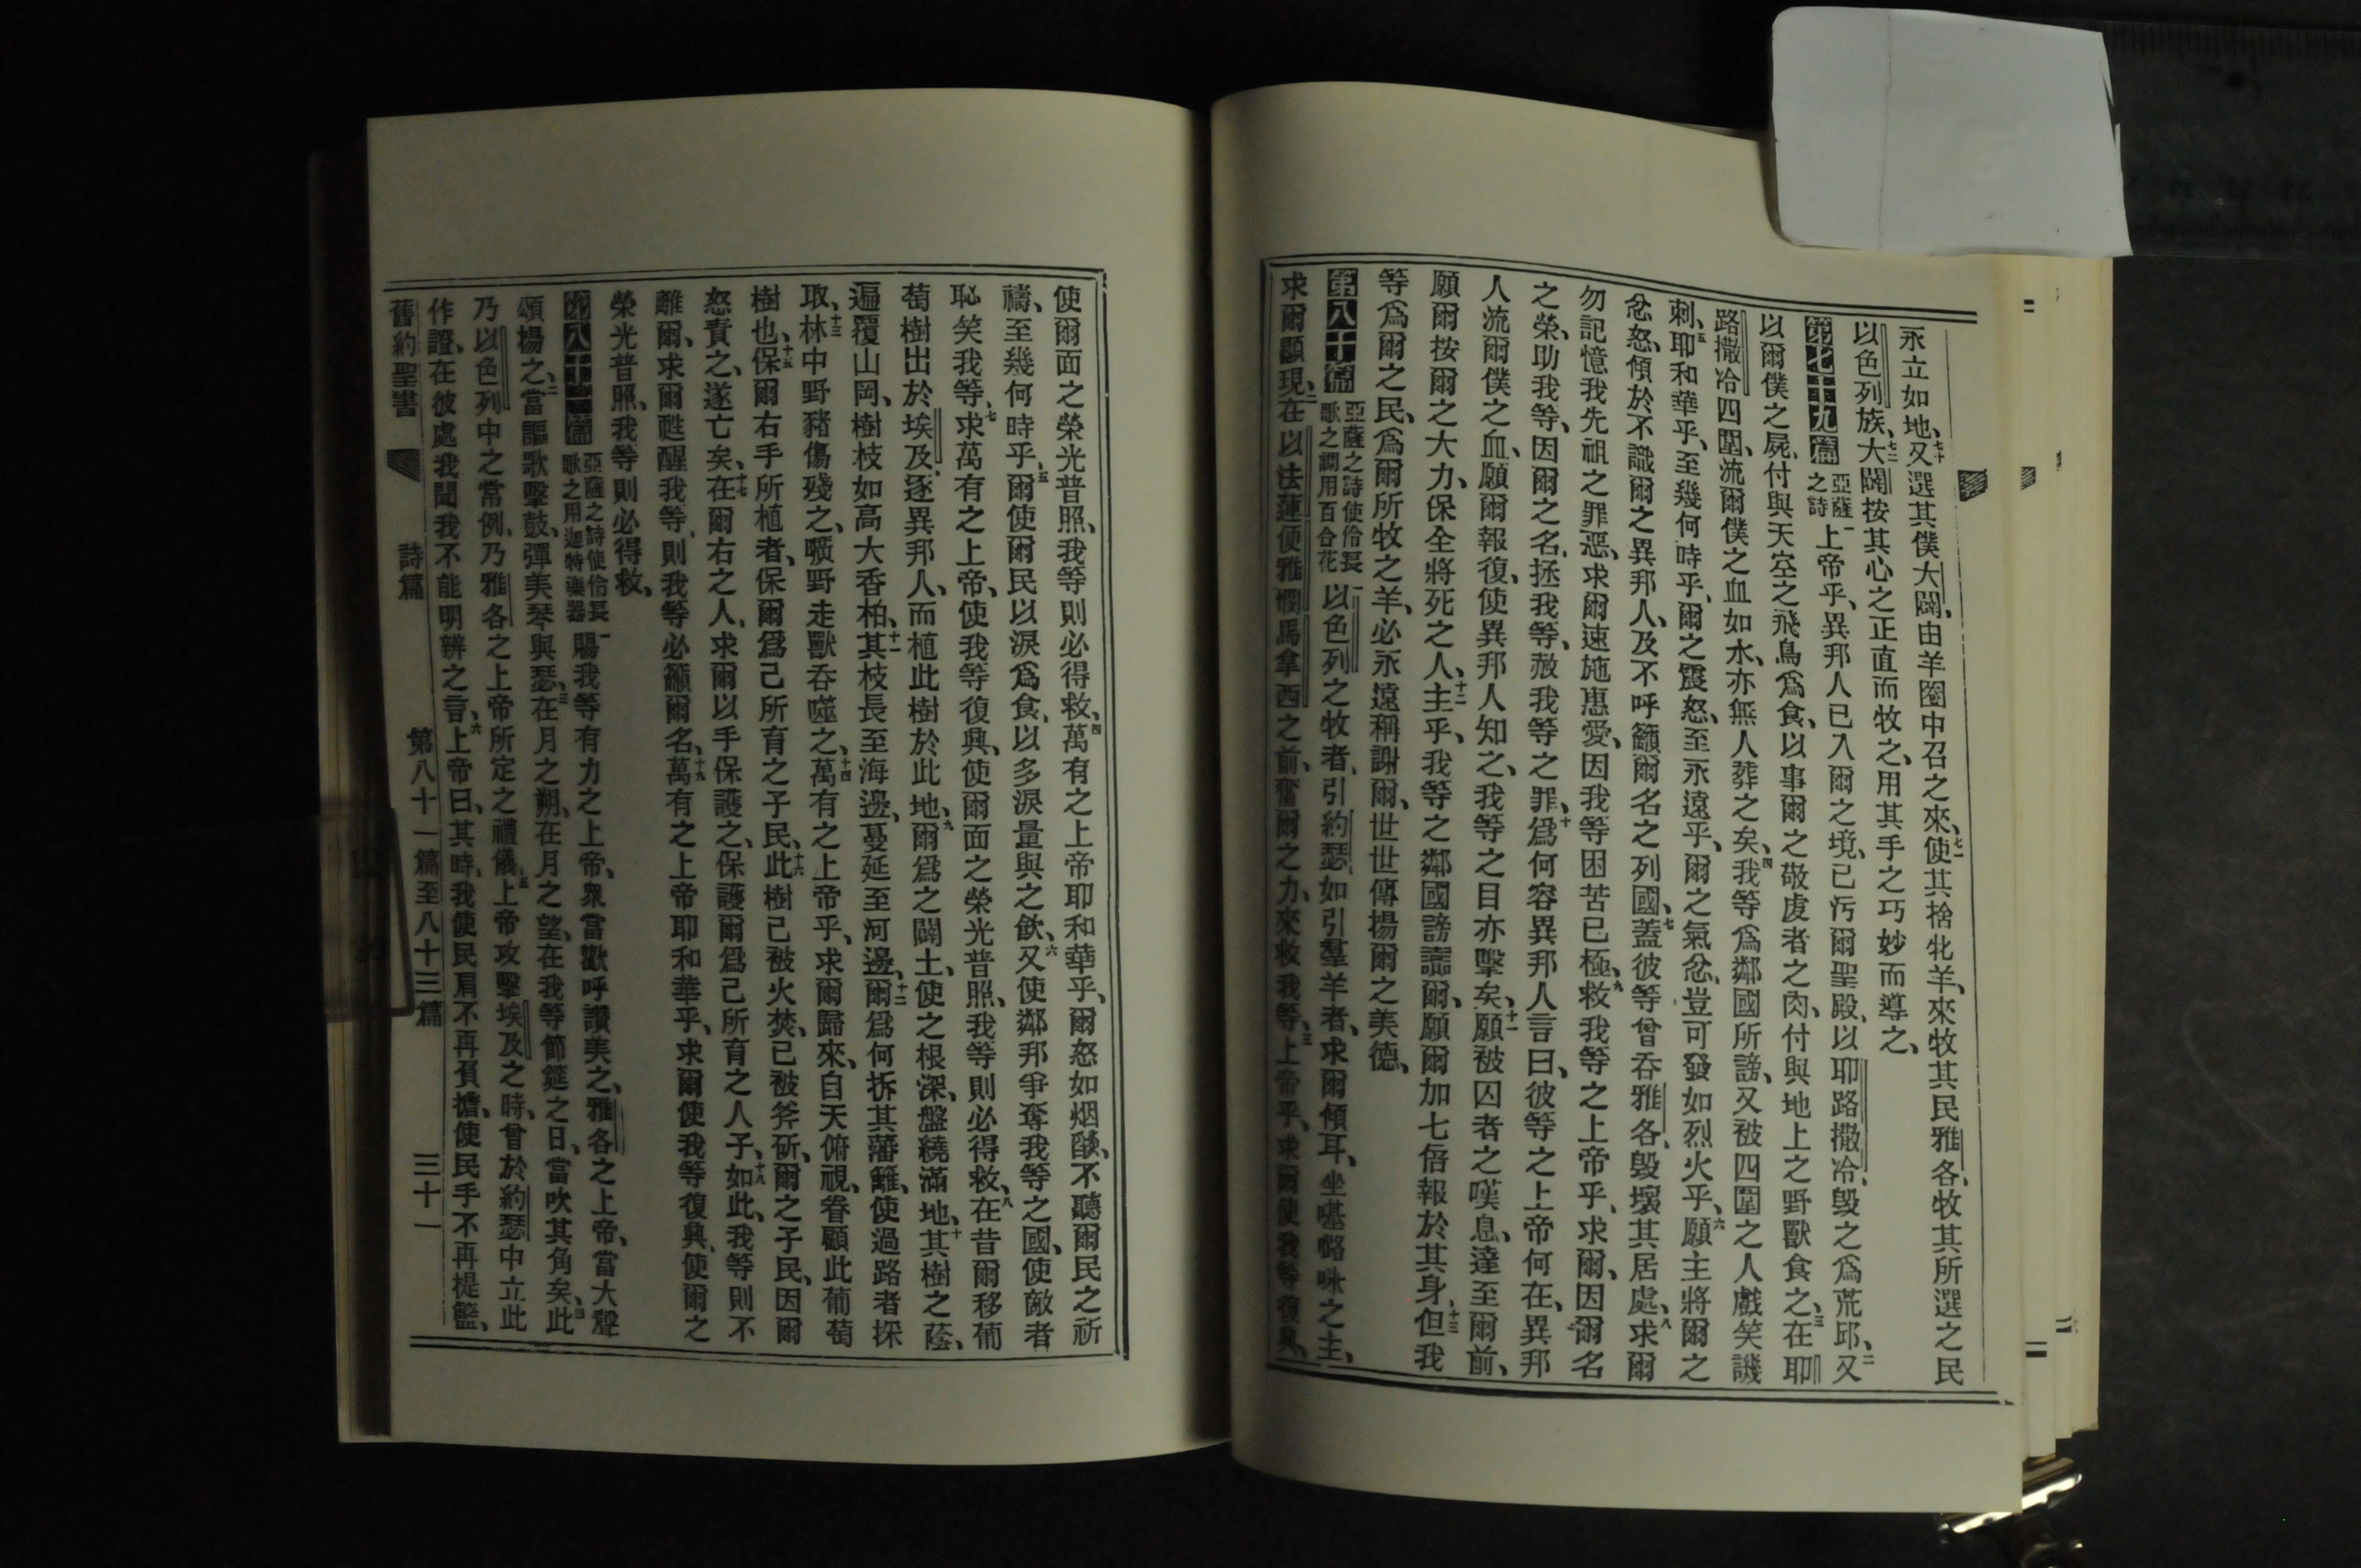 永立如地、七十又選其僕大闢、由羊圈中召之來、七一使其捨牝羊、來牧其民雅各、牧其所選之民
以色列族、七二大闢按其心之正直而牧之、用其手之巧妙而導之、
第七十九篇 亞薩之詩 一上帝乎、異邦人已入爾之境、已污爾聖殿、以耶路撒冷、毀之爲荒邱、二又
以爾僕之屍、付與天空之飛鳥爲食、以事爾之敬虔者之肉、付與地上之野獸食之、三在耶
路撒冷四圍、流爾僕之血如水、亦無人葬之矣、四我等爲鄰國所謗、又被四圍之人戲笑譏
刺、五耶和華乎、至幾何時乎、爾之震怒、至永遠乎、爾之氣忿、豈可發如烈火乎、六願主將爾之
忿怒、傾於不識爾之異邦人、及不呼籲爾名之列國、七蓋彼等曾吞雅各、毀壞其居處、八求爾
勿記憶我先祖之罪惡、求爾速施惠愛、因我等困苦已極、九救我等之上帝乎、求爾、因爾名
之榮、助我等、因爾之名、拯我等、赦我等之罪、十爲何容異邦人言曰、彼等之上帝何在、異邦
人流爾僕之血、願爾報復、使異邦人知之、我等之目亦擊矣、十一願被囚者之嘆息、達至爾前、
願爾按爾之大力、保全將死之人、十二主乎、我等之鄰國謗讟爾、願爾加七倍報於其身、十三但我
等爲爾之民、爲爾所牧之羊、必永遠稱謝爾、世世傳揚爾之美德、
第八十篇 亞薩之詩使伶長歌之調用百合花 一以色列之牧者、引約瑟、如引羣羊者、求爾傾耳、坐𠼻𠺝咪之主、
求爾顯現、二在以法蓮便雅憫馬拿西之前、奮爾之力、來救我等、三上帝乎、求爾使我等復興、
使爾面之榮光普照、我等則必得救、四萬有之上帝耶和華乎、爾怒如烟燄、不聽爾民之祈
禱、至幾何時乎、五爾使爾民以淚爲食、以多淚量與之飲、六又使鄰邦爭奪我等之國、使敵者
恥笑我等、七求萬有之上帝、使我等復興、使爾面之榮光普照、我等則必得救、八在昔爾移葡
萄樹出於埃及、逐異邦人、而植此樹於此地、九爾爲之闢土、使之根深、盤繞滿地、十其樹之蔭、
遍覆山岡、樹枝如高大香柏、十一其枝長至海邊、蔓延至河邊、十二爾爲何拆其藩籬、使過路者採
取、十三林中野豬傷殘之、曠野走獸吞噬之、十四萬有之上帝乎、求爾歸來、自天俯視、眷顧此葡萄
樹也、十五保爾右手所植者、保爾爲己所育之子民、十六此樹已被火焚、已被斧斫、爾之子民、因爾
怒責之、遂亡矣、十七在爾右之人、求爾以手保護之、保護爾爲己所育之人子、十八如此、我等則不
離爾、求爾甦醒我等、則我等必籲爾名、十九萬有之上帝耶和華乎、求爾使我等復興、使爾之
榮光普照、我等則必得救、
第八十一篇 亞薩之詩使伶長歌之用迦特樂器 一賜我等有力之上帝、衆當歡呼讚美之、雅各之上帝、當大聲
頌揚之、二當謳歌擊鼓、彈美琴與瑟、三在月之朔、在月之望、在我等節筵之日、當吹其角矣、四此
乃以色列中之常例、乃雅各之上帝所定之禮儀、五上帝攻擊埃及之時、曾於約瑟中立此
作證、在彼處我聞我不能明辨之言、六上帝曰、其時、我使民肩不再負擔、使民手不再提籃、
舊約聖書 詩篇 第八十一篇至八十三篇 三十一